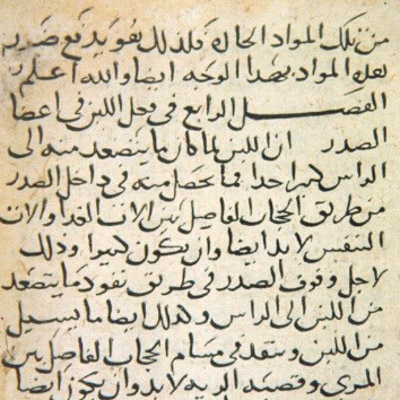 من تلك المواد الحارة فلذلك
هذه المواد بهذا الوجه ايضا والله اعلم
الفصل الرابع في فعل اللبن في اعضا
الصدر ان اللبن لما كان ما يتصعد منه الى
الراس كثيرا جدا فما يحصل منه في داخل الصدر
من طريق الحجاب الفاصل بين الات الغذا والات
التنفس لا بد ايضا وان يكون كثيرا وذلك
لاجل وقوف الصدر في طريق نفوذ ما يتصعد
من اللبن الى الراس وكذلك ايضا ما يسيل
من اللبن وينفذ في مسام الحجاب الفاصل بين
المرى وقصبة الرية لا بد وان يكون ايضا